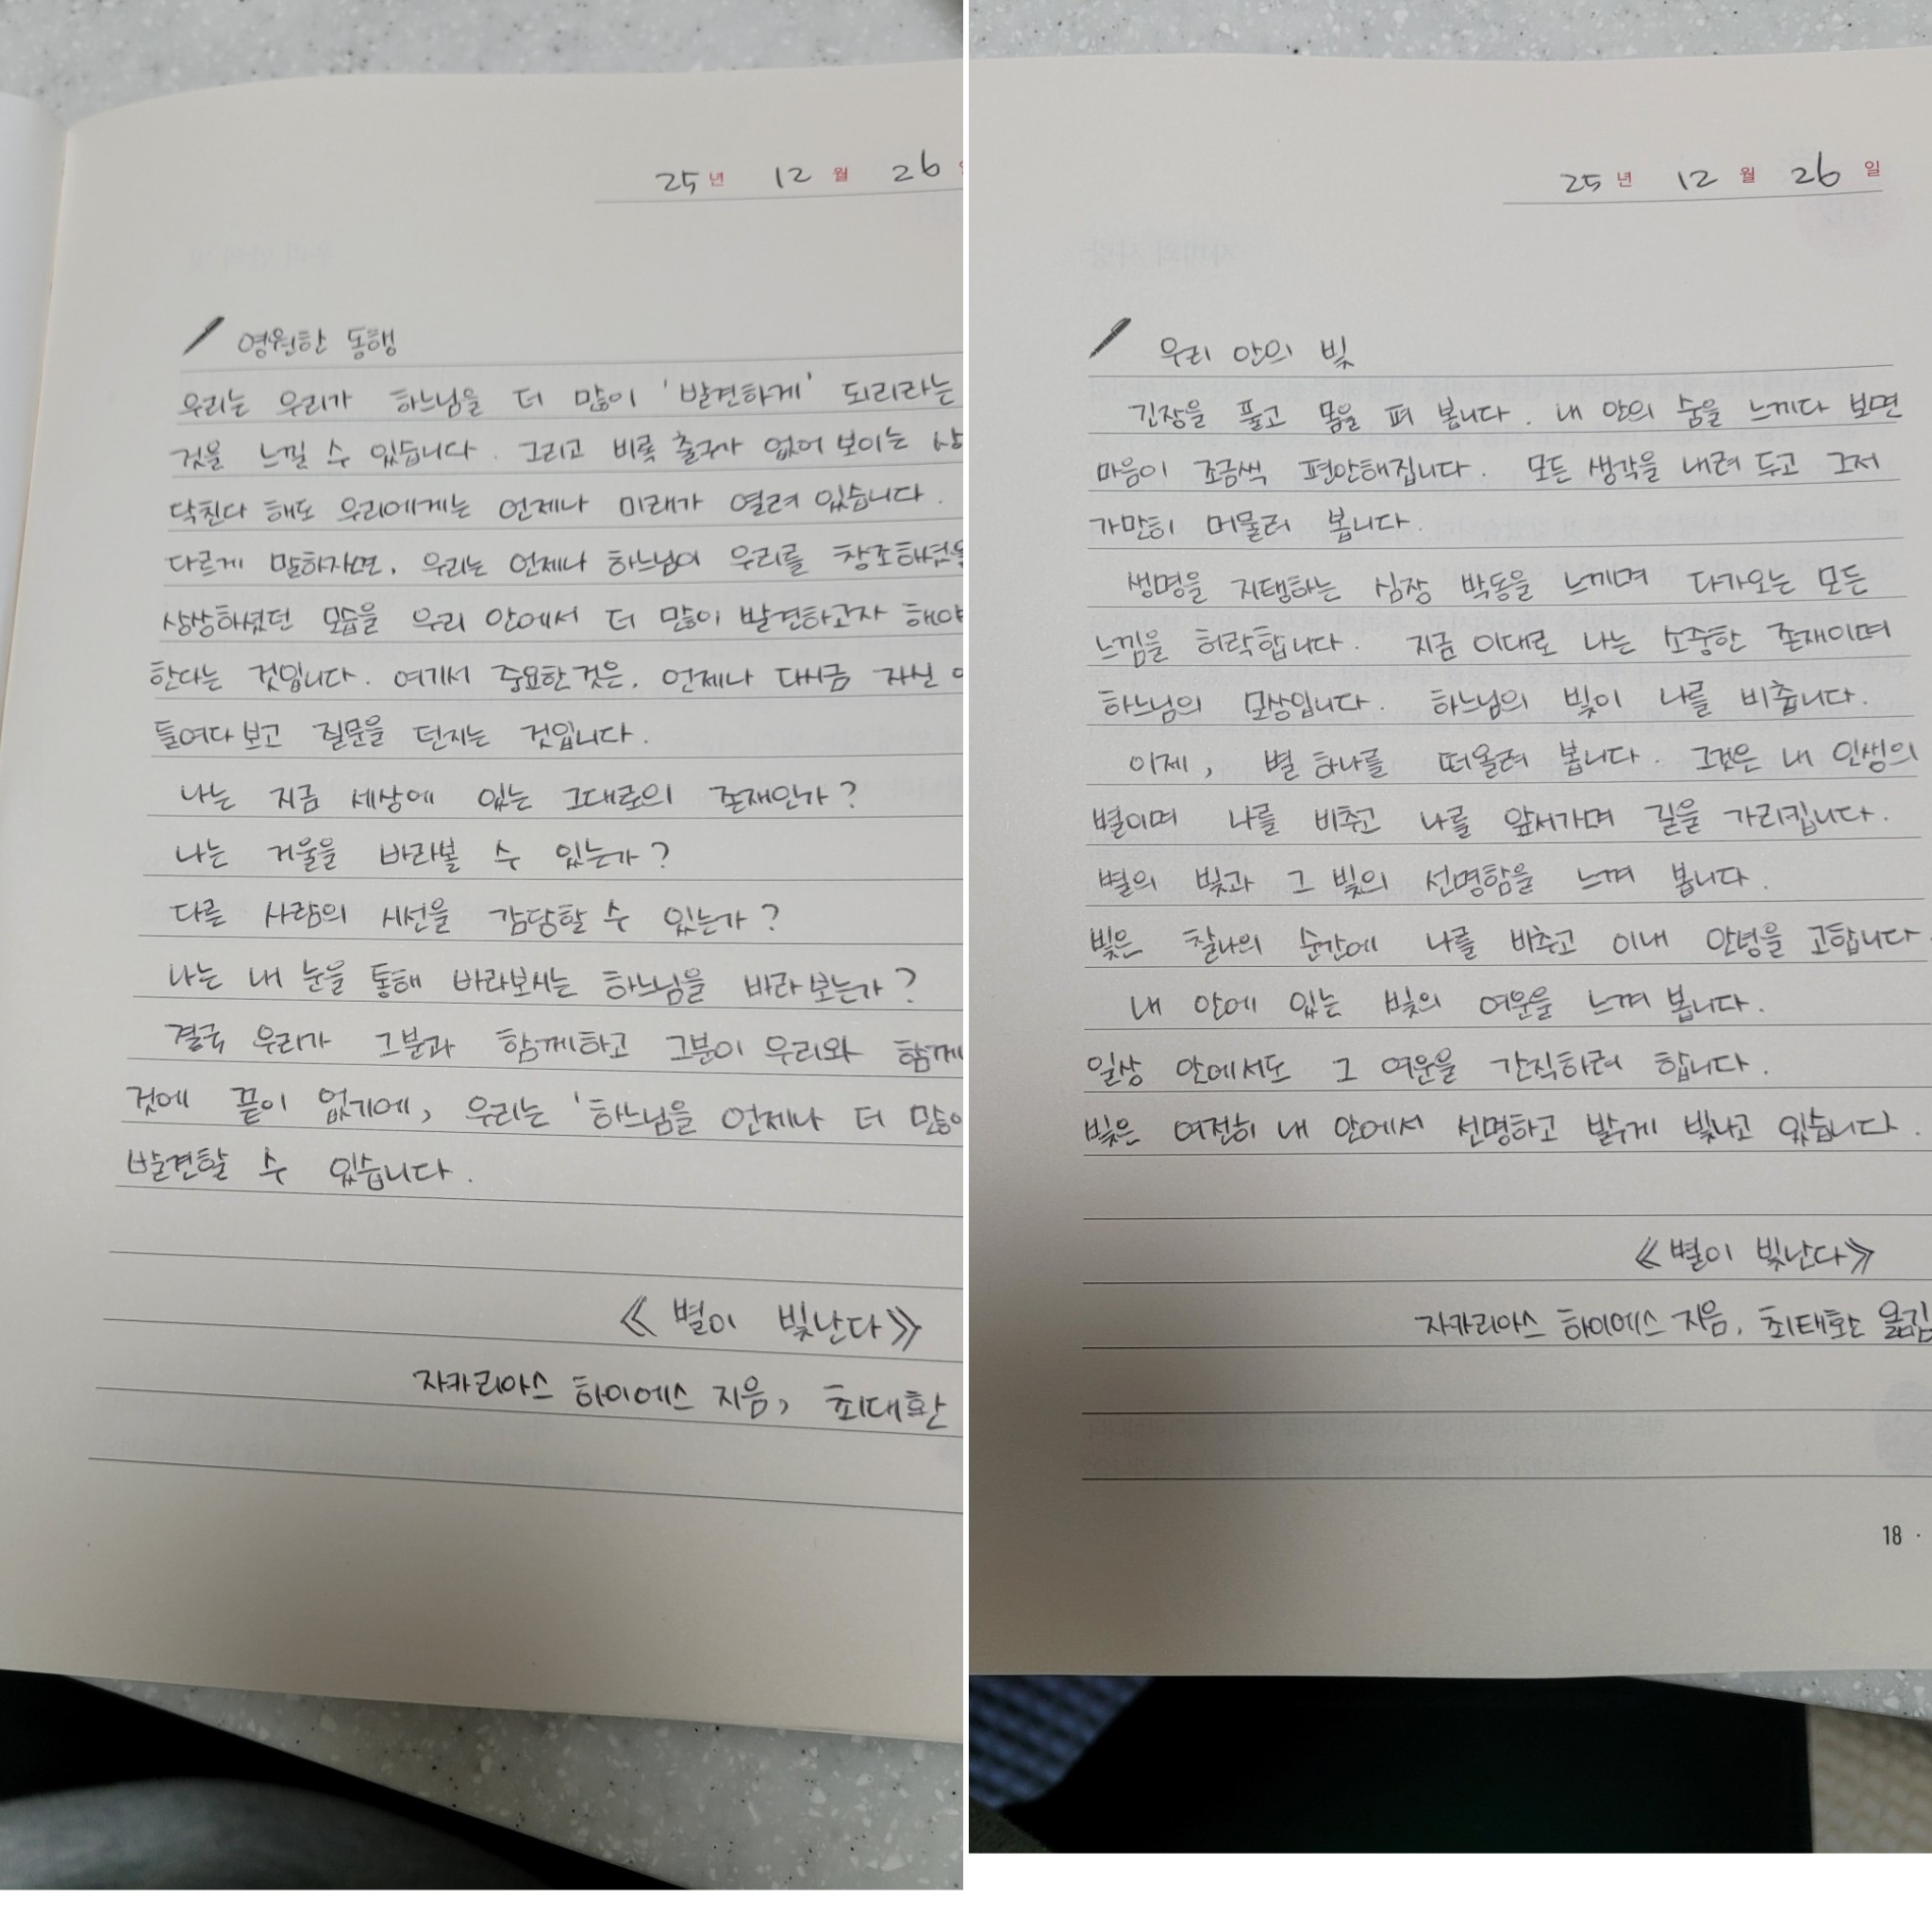 25년 12월 26
영원한 동행
우리는 우리가 하느님을 더 많이 '발견하게' 되리라는
것을 느낄 수 있습니다. 그리고 비록 출구가 없어 보이는 상
닥친다 해도 우리에게는 언제나 미래가 열려 있습니다.
다르게 말하자면, 우리는 언제나 하느님이 우리를 창조해셨을
상상하셨던 모습을 우리 안에서 더 많이 발견하고자 해야
한다는 것입니다. 여기서 중요한 것은, 언제나 다시금 자신
틀여다 보고 질문을 던지는 것입니다.
나는 지금 세상에 있는 그대로의 존재인가?
나는 거울을 바라볼 수 있는가?
다른 사람의 시선을 감당할 수 있는가?
나는 내 눈을 통해 바라보시는 하느님을 바라보는가?
결국 우리가 그분과 함께하고 그분이 우리와 함께
것에 끝이 없기에, 우리는 '하느님을 언제나 더 많이
발견할 수 있습니다.
《별이 빛난다》
자카리아스 하이에스 지음, 최대환
25년 12월 26일
우리 안의 빛
긴장을 풀고 몸을 펴 봅니다. 내 안의 숨을 느끼다 보면
마음이 조금씩 편안해집니다. 모든 생각을 내려 두고 그저
가만히 머물러 봅니다.
생명을 지탱하는 심장 박동을 느께며 다가오는 모든
느낌을 허락합니다. 지금 이대로 나는 소중한 존재이며
하느님의 모상입니다. 하느님의 빛이 나를 비춥니다.
이제, 별 하나를 떠올려 봅니다. 그것은 내 인생의
별이며 나를 비추고 나를 앞서가며 길을 가리킵니다.
별의 빛과 그 빛의 선명함을 느껴 봅니다.
빛은 찰나의 순간에 나를 비추고 이내 안녕을 고합니다
내 안에 있는 빛의 여운을 느껴 봅니다.
일상 안에서도 그 여운을 간직하려 합니다.
빛은 여전히 내 안에서 선명하고 밝게 빛나고 있습니다.
《별이 빛난다》
자카리아스 하이에스 지음, 최대환 옮김
18